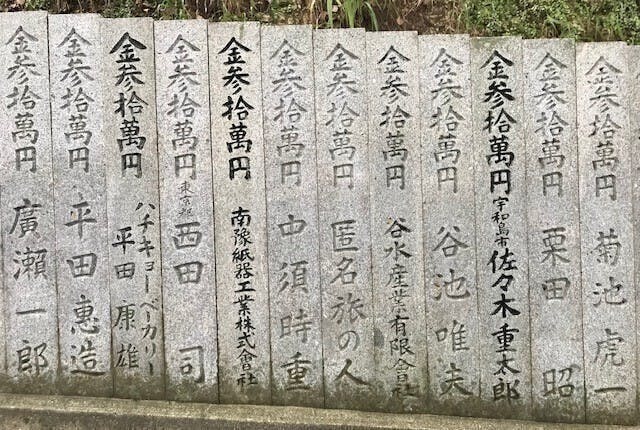 金参拾萬円 菊池虎一
金参拾萬円 栗田 昭
金参拾萬円 宇和島市 佐々木重太郎
金参拾萬円 谷池唯夫
金参拾萬円 谷水産業有限会社
金参拾萬円 匿名旅の人
金参拾萬円 中須時重
金参拾萬円 南豫紙器工業株式會社
金参拾萬円 東京都 西田 司
金参拾萬円 ハチキョーベーカリー
平田康雄
金参拾萬円 平田惠造
金参拾萬円 廣瀬一郎